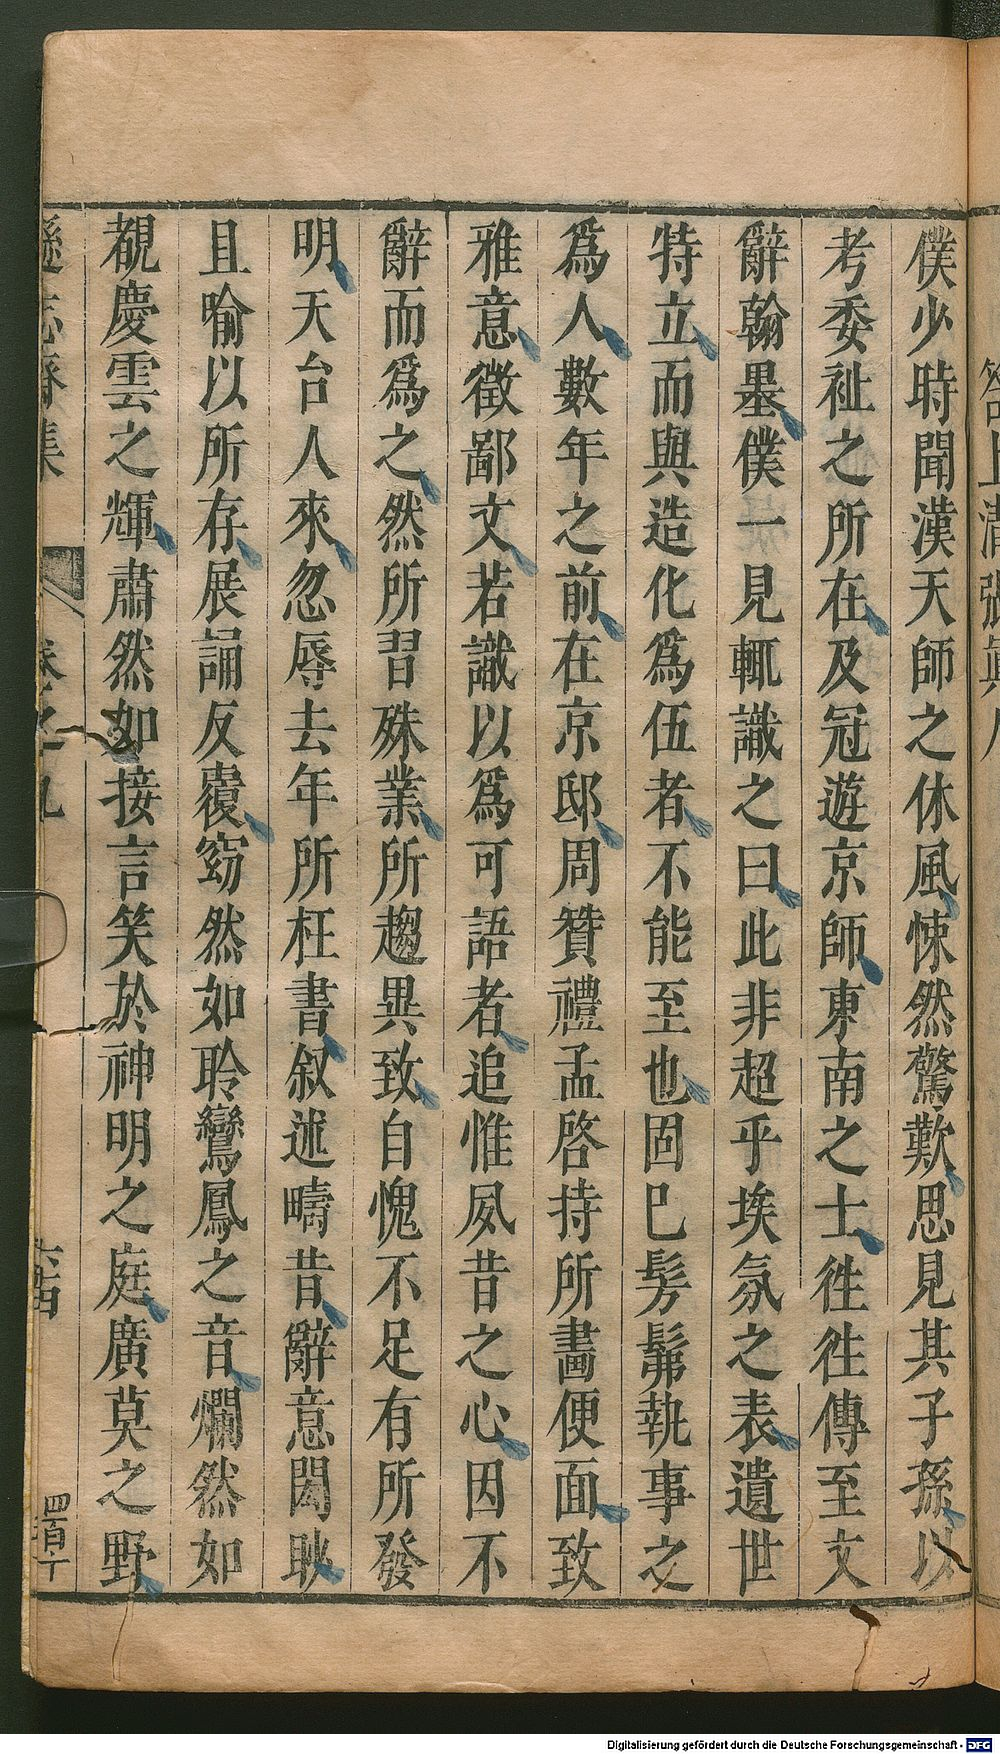 僕少時聞漢天師之休風悚然驚歎思見其子孫以
考委祉之所在及冠遊京師東南之士徃徃傳至文
辭翰墨僕一見輒識之曰此非超乎埃氛之表遺世
特立而與造化爲伍者不能至也固巳髣髴執事之
爲人數年之前在京邸周贊禮孟啓持所畵便面致
雅意徵鄙文若識以爲可語者追惟夙昔之心因不
辭而爲之然所習殊業所趨異致自愧不足有所發
明天台人來忽辱去年所枉書叙述疇昔辭意閎耿
且喻以所存展誦反覆窈然如聆鸞鳳之音爛然如
覩慶雲之輝肅然如接言笑於神明之庭廣莫之野
遜志齋集 卷之九 六四 四百十
Digitalisierung gefördert durch die Deutsche Forschungsgemeinschaft - DFG